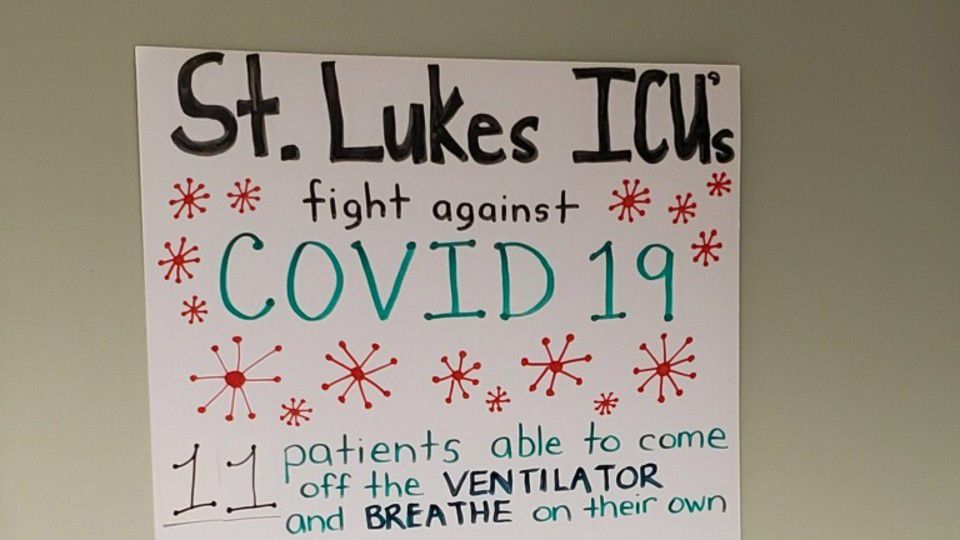 St. Lukes ICU's
fight against
COVID 19
11 patients able to come
off the VENTILATOR
and BREATHE on their own